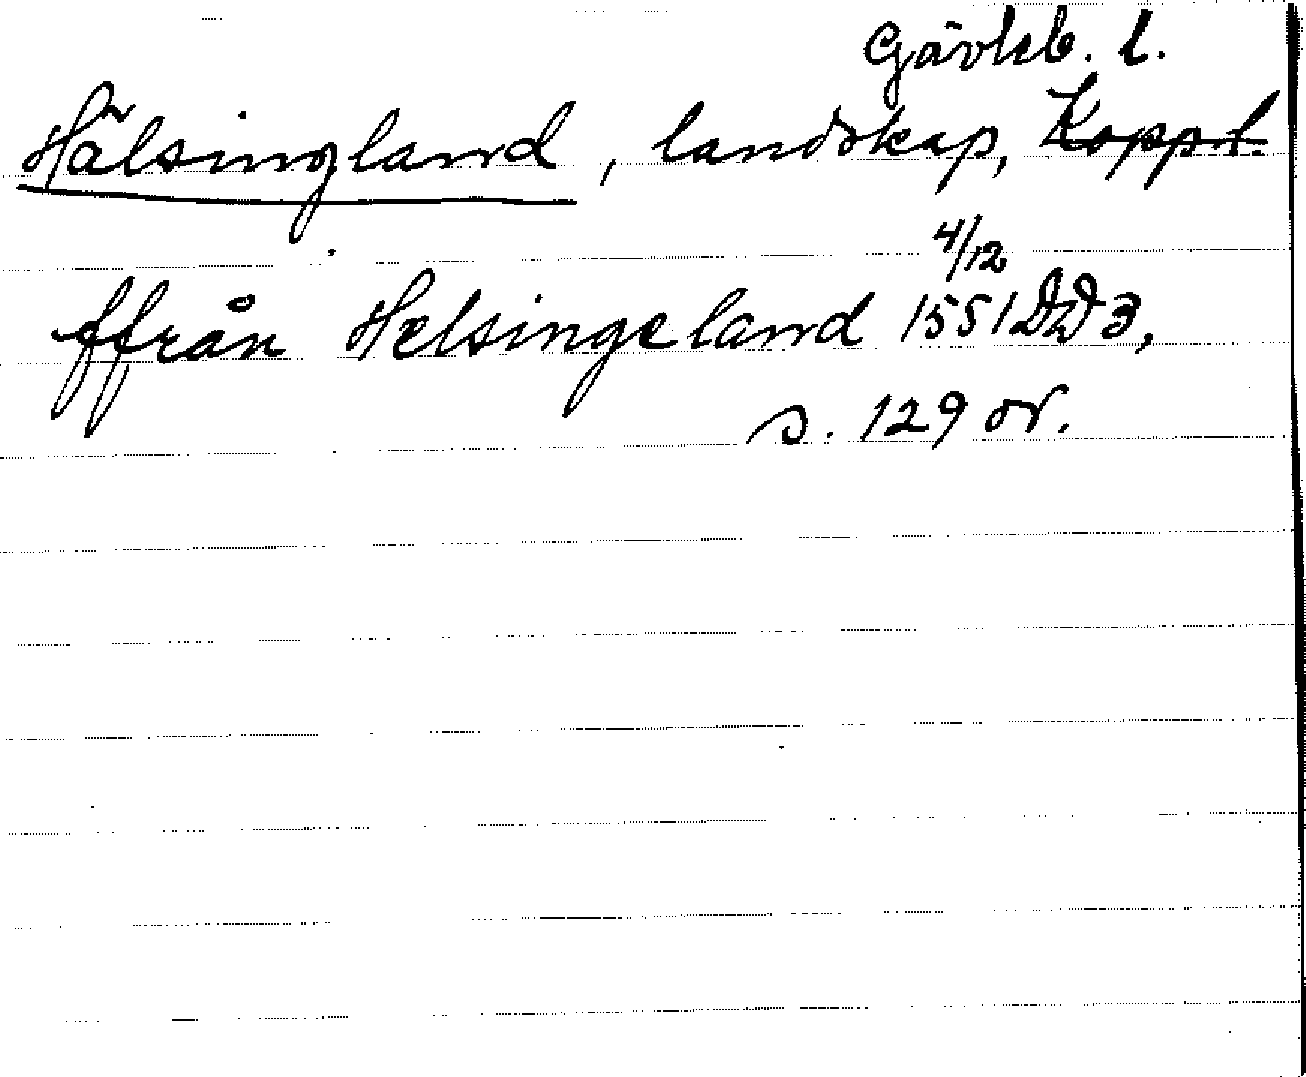 Gävleb. l.
Hälsingland, landskap, Kopp.l.
ffrån Helsingeland 4/12 1551 DD 3,
s. 129 or.